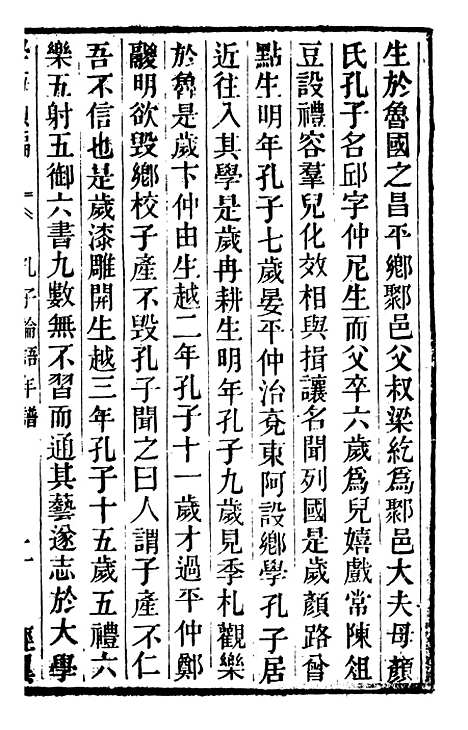 生於魯國之昌平鄉鄹邑父叔梁紇爲鄹邑大夫母顏
氏孔子名邱字仲尼生而父卒六歲爲兒嬉戲常陳俎
豆設禮容羣兒化效相與揖讓名聞列國是歲顏路曾
點生明年孔子七歲晏平仲治兗東阿設鄉學孔子居
近往入其學是歲冉耕生明年孔子九歲見季札觀樂
於魯是歲卞仲由生越二年孔子十一歲才過平仲鄭
鬷明欲毀鄉校子產不毀孔子聞之曰人謂子產不仁
吾不信也是歲漆雕開生越三年孔子十五歲五禮六
樂五射五御六書九數無不習而通其藝遂志於大學
孔子論語年譜